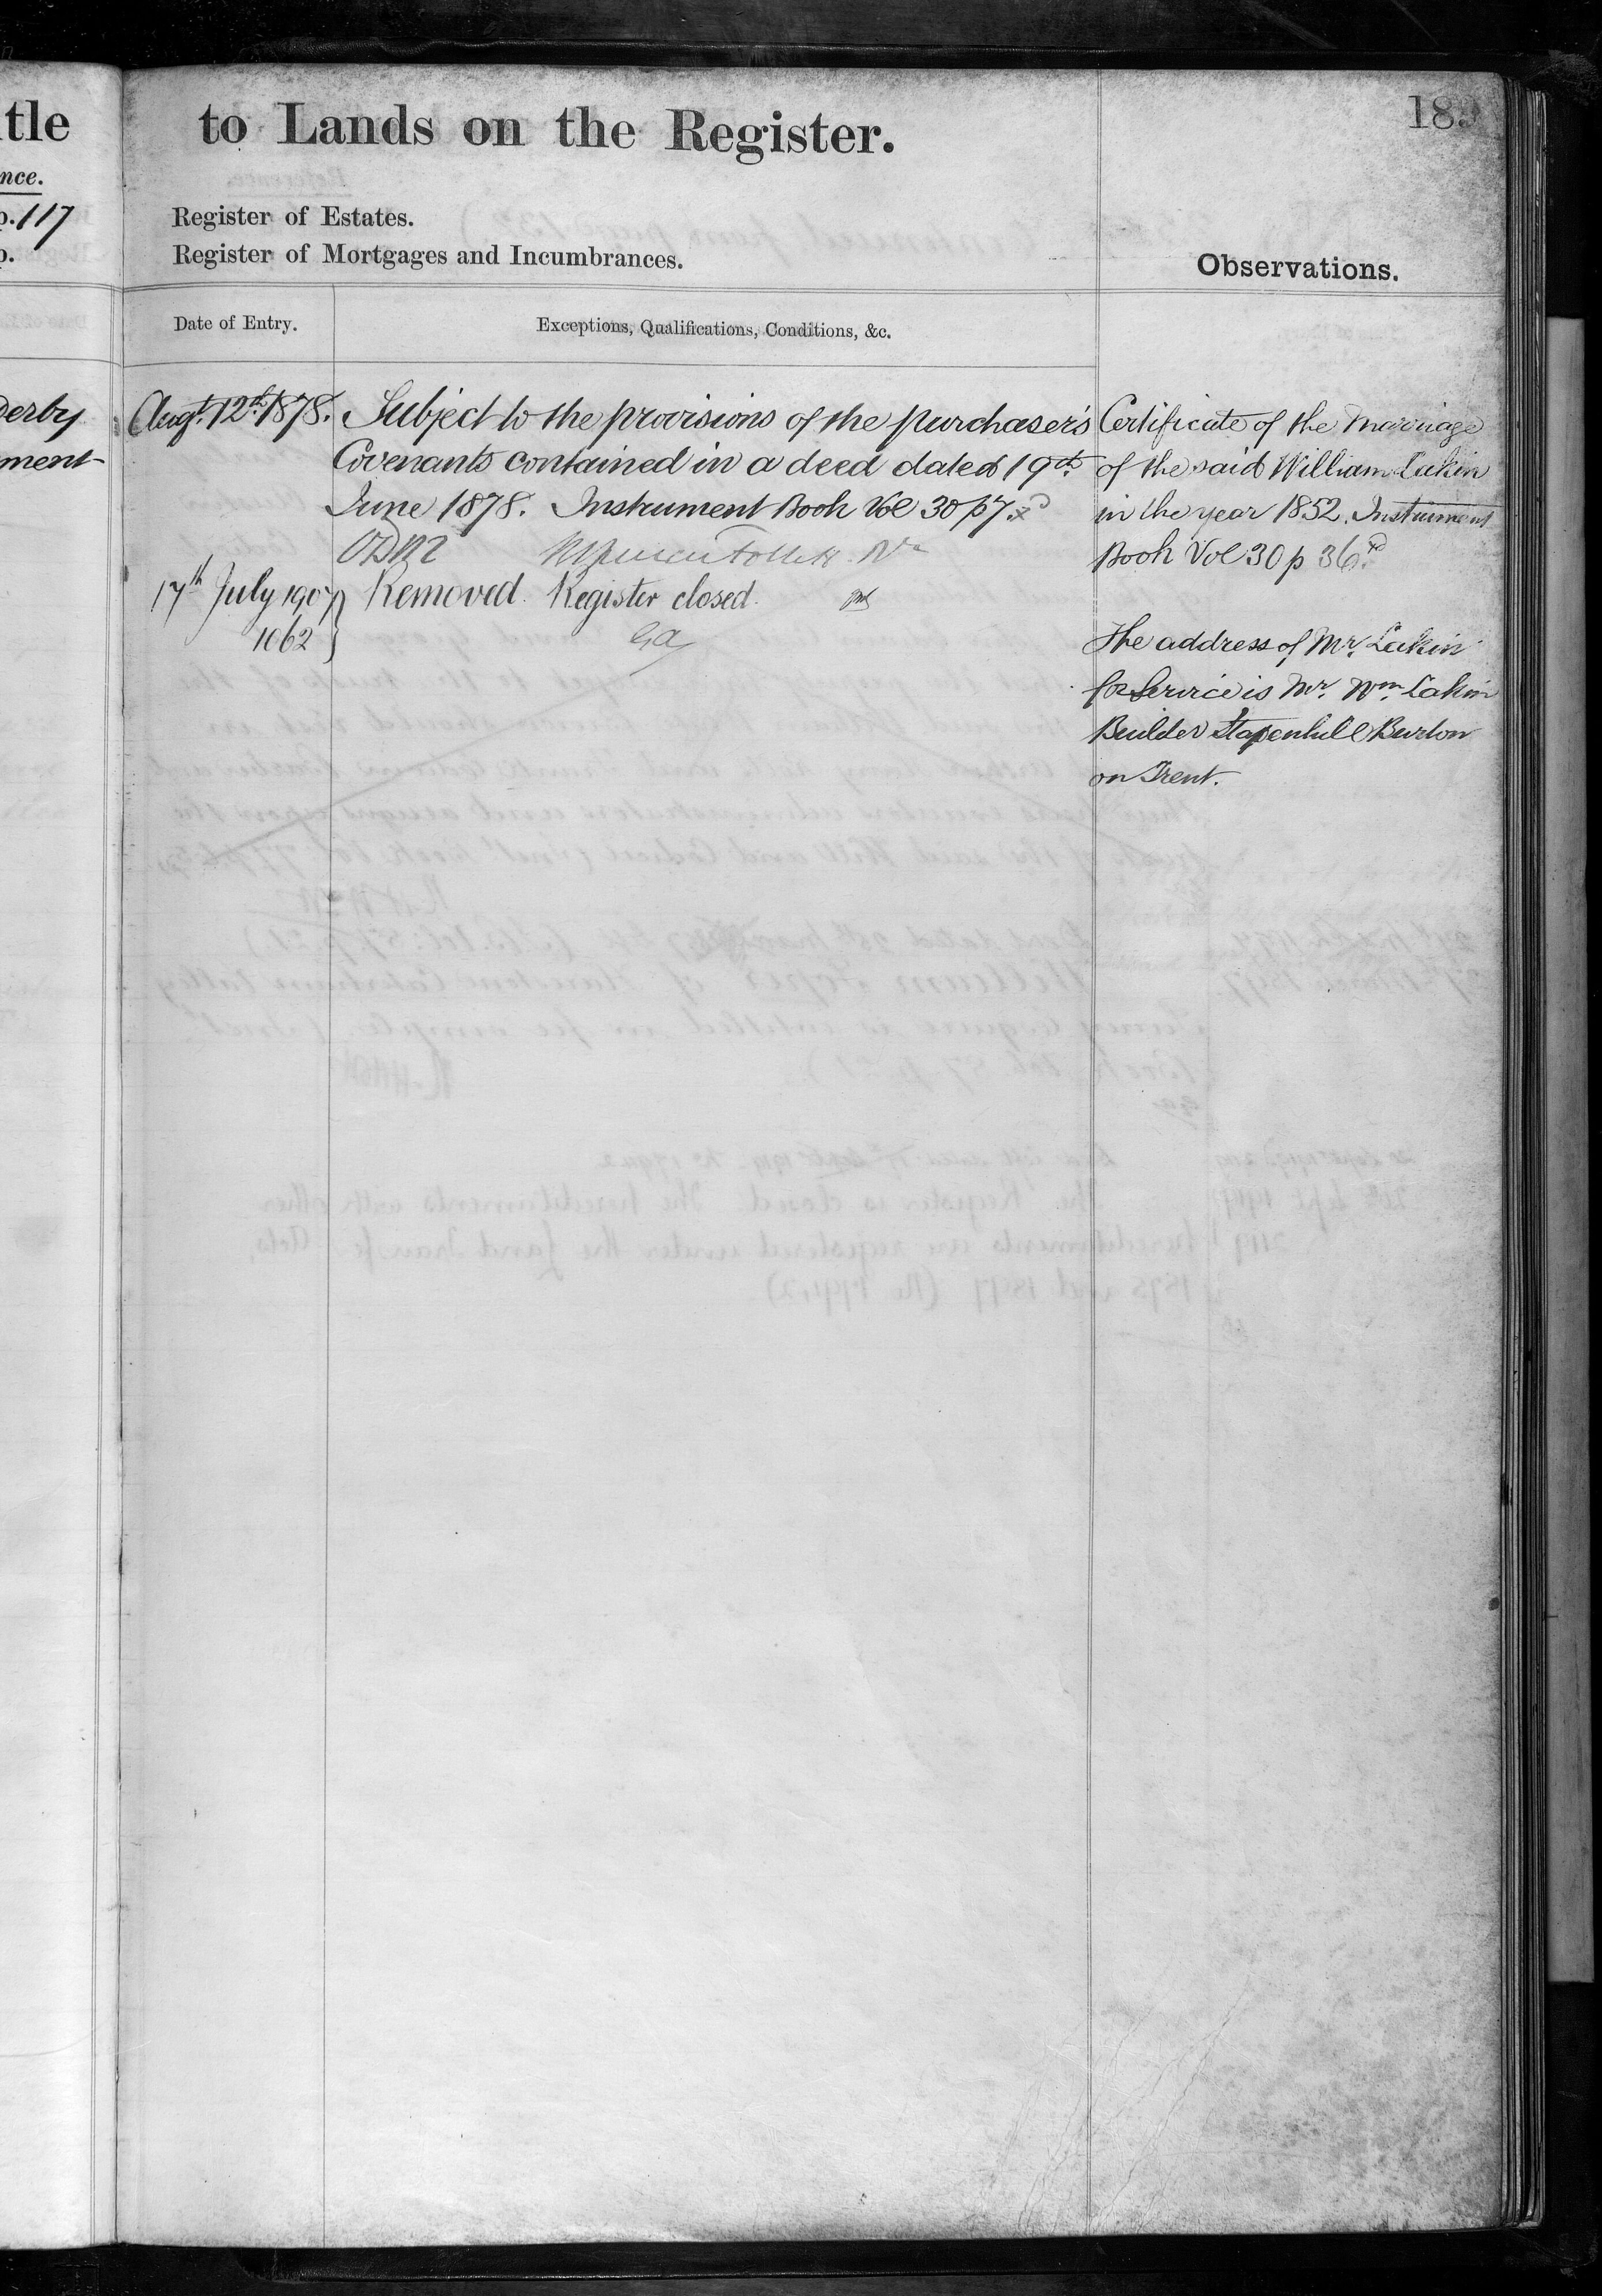 tle
nce.
p. 117
p.
Derby
ment
to Lands on the Register.
189
Register of Estates.
Register of Mortgages and Incumbrances.
Observations.
Date of Entry.
Exceptions, Qualifications, Conditions, &c.
Augt. 12th 1878.
Subject to the provisions of the purchaser's
Covenants contained in a deed dated 19th
June 1878. Instrument Book Vol 30 p 7.
17th July 1907
1062
Removed. Register closed.
Certificate of the Marriage
of the said William Lakin
in the year 1852. Instrument
Book Vol 30 p 36.
The address of Mr. Lakin
for Service is Mr. Wm. Lakin
Builder Stapenhill Burton
on Trent.